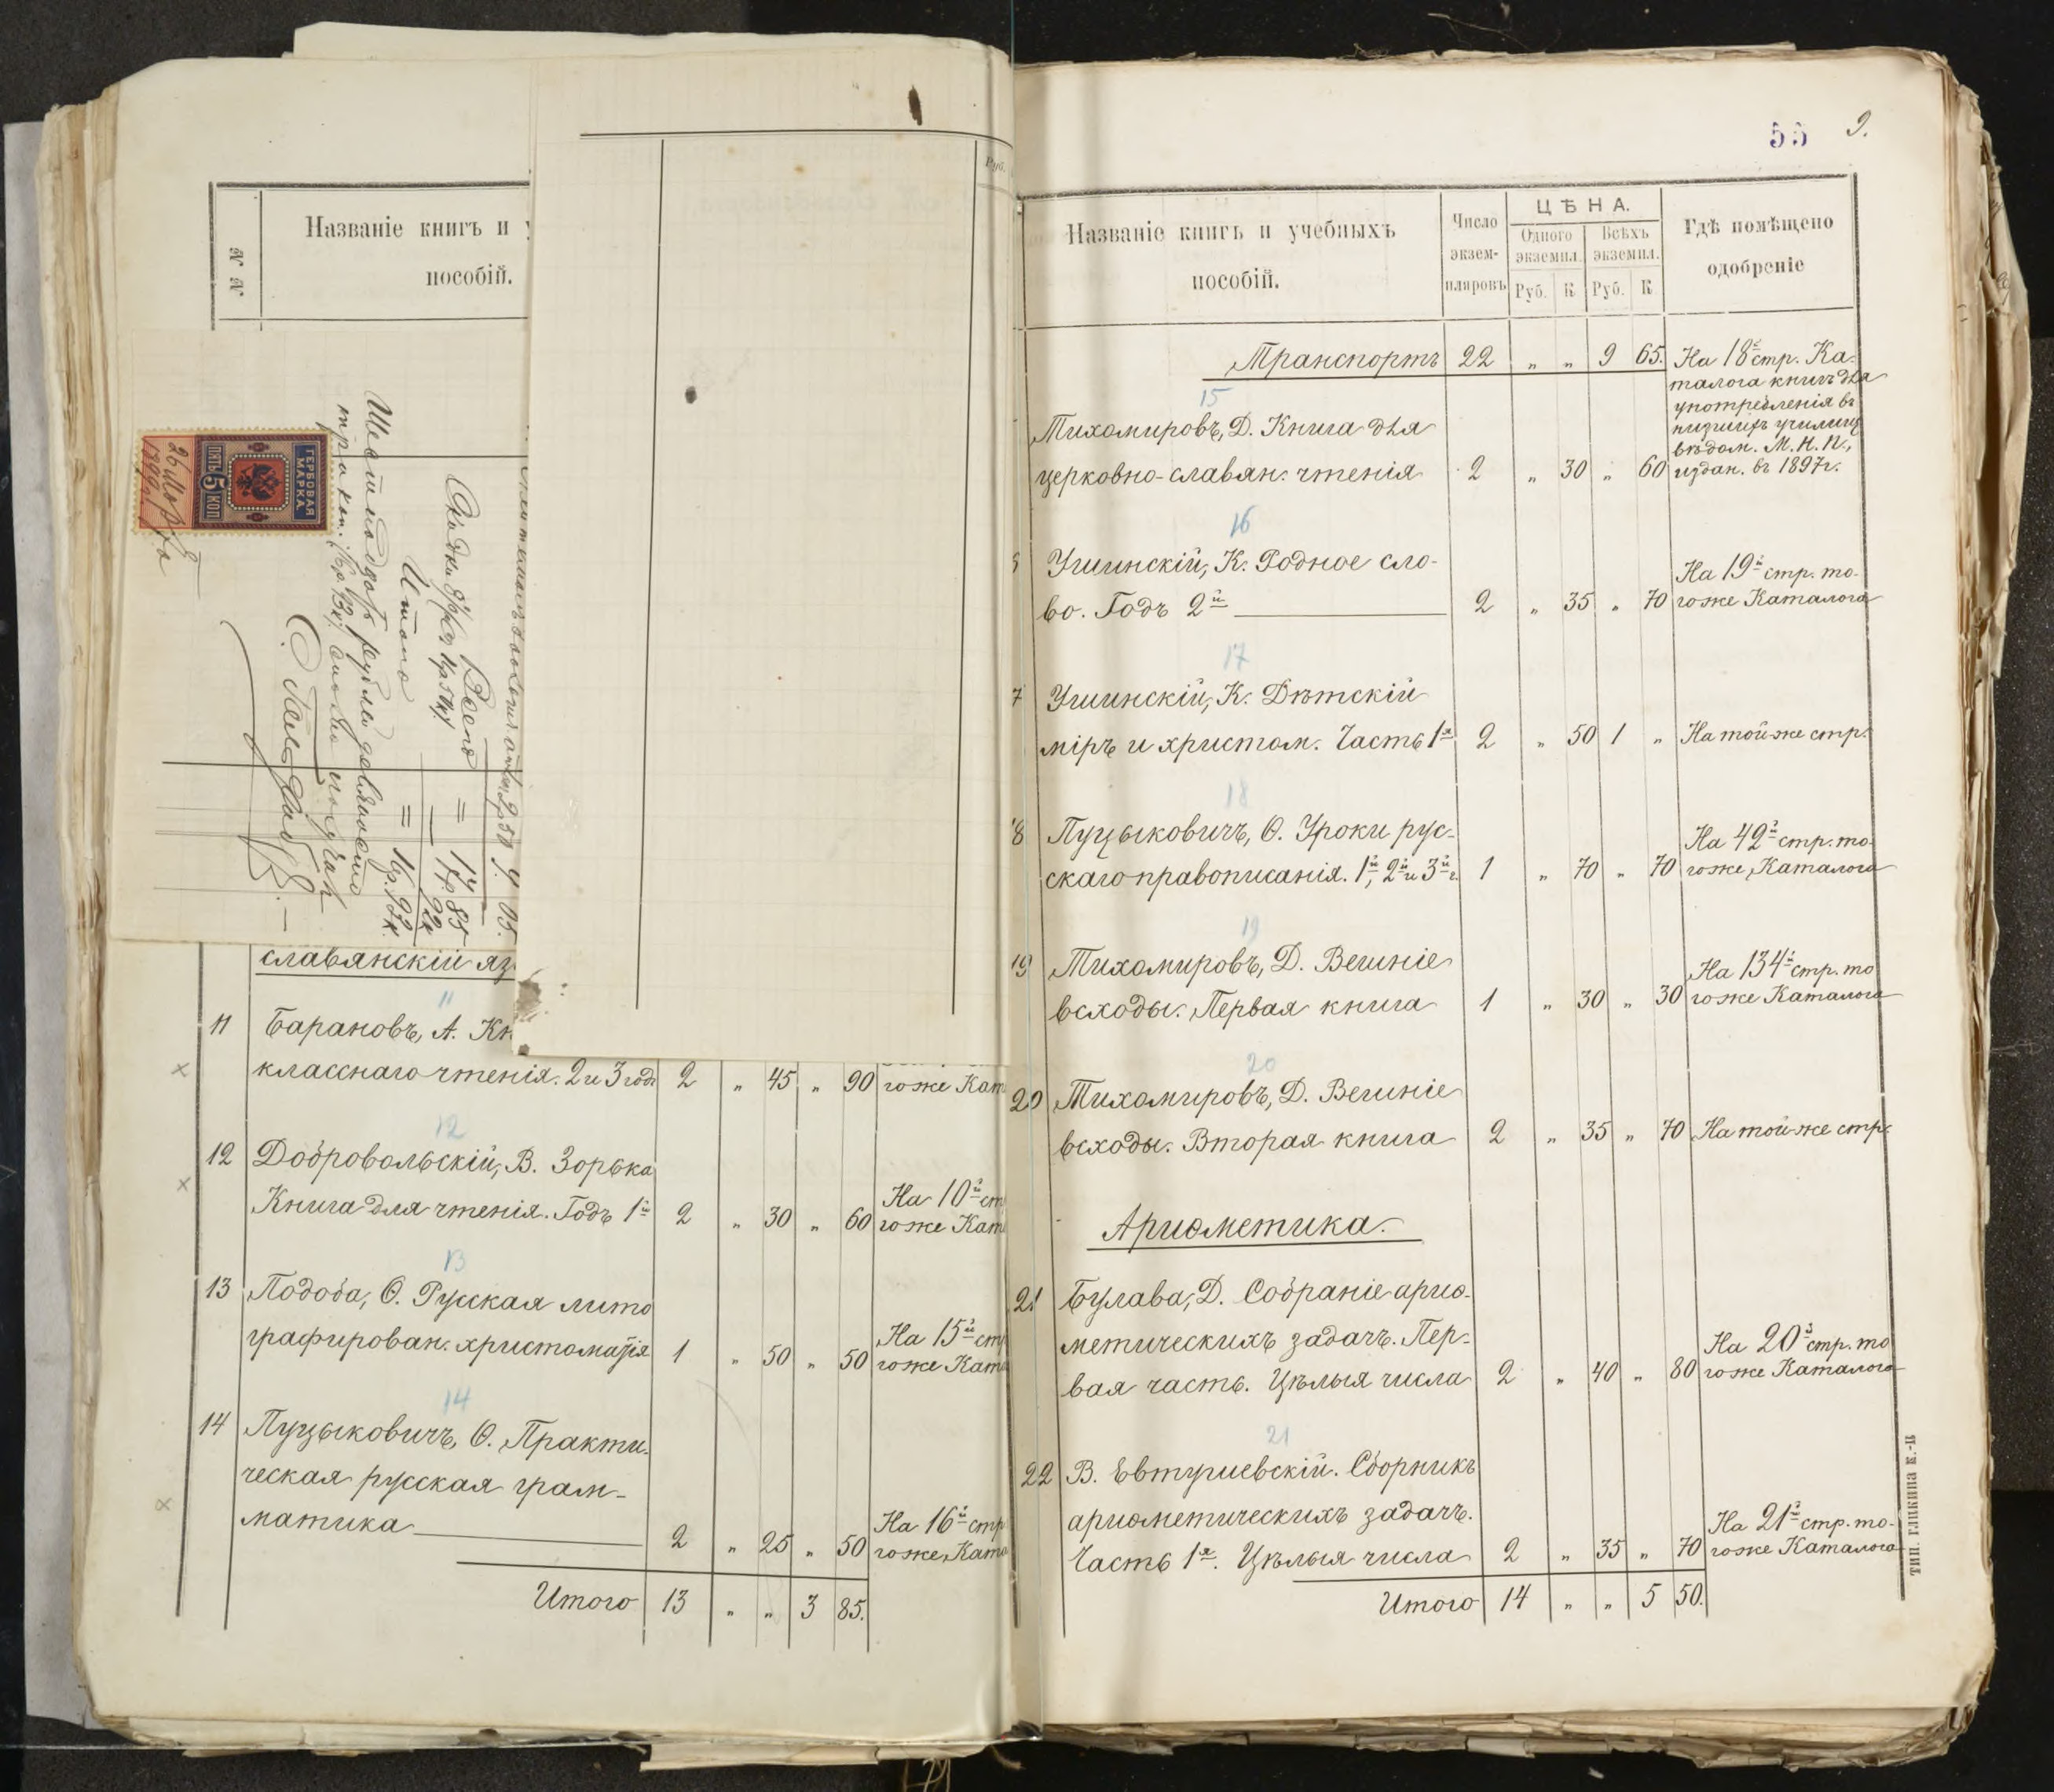 № №
Названіе книгъ и у
пособій.
Руб.
ГЕРБОВАЯ
МАРКА.
5
ПЯТЬ КОП
Всего = 17р. 85
Скидки
Итого = 16р. 93к.
Шестнадцать рублей девяносто
три коп.
славянскій яз
11
11 Барановъ, А. Кн
класснаго чтенія. 2 и 3 годъ 2 „ 45 „ 90 гоже Кат
12
12 Добровольскій, В. Зорька
Книга для чтенія. Годъ 1й 2 „ 30 „ 60 На 10й ст
гоже Кат
13
13 Подоба, Ѳ. Русская лито
графирован. христоматія 1 „ 50 „ 50 На 15й стр
гоже Ката
14
14 Пуцыковичъ, Ѳ. Практи-
ческая русская грам-
матика 2 „ 25 „ 50 На 16й стр
гоже Ката
Итого 13 „ „ 3 85.
55 9.
Названіе книгъ и учебныхъ
пособій.
Число
экзем-
пляровъ
ЦѢНА.
Одного
экземпл.
Всѣхъ
экземпл.
Руб. К Руб. К
Гдѣ помѣщено
одобреніе
Транспортъ 22 „ „ 9 65.
На 18й стр. Ка-
талога книгъ для
употребленія въ
низшихъ училищ
вѣдом. М. Н. П.,
издан. въ 1897г.
15
Тихомировъ, Д. Книга для
церковно-славян. чтенія 2 „ 30 „ 60
16
Ушинскій, К. Родное сло-
во. Годъ 2й 2 „ 35 „ 70 На 19й стр. то-
гоже Каталога
17
7 Ушинскій, К. Дѣтскій
міръ и христом. Часть 1я 2 „ 50 1 „ На той же стр.
18
8 Пуцыковичъ, Ѳ. Уроки рус-
скаго правописанія. 1й, 2й и 3й г. 1 „ 70 „ 70 На 42й стр. то-
гоже Каталога
19
19 Тихомировъ, Д. Вешніе
всходы. Первая книга 1 „ 30 „ 30 На 134й стр. то
гоже Каталога
20
20 Тихомировъ, Д. Вешніе
всходы. Вторая книга 2 „ 35 „ 70 На той же стр.
Ариѳметика.
21 Булава, Д. Собраніе ариѳ-
метическихъ задачъ. Пер-
вая часть. Цѣлыя числа 2 „ 40 „ 80 На 20й стр. то
гоже Каталога
21
22 В. Евтушевскій. Сборникъ
ариѳметическихъ задачъ.
Часть 1я. Цѣлыя числа 2 „ 35 „ 70 На 21й стр. то-
гоже Каталога
Итого 14 „ „ 5 50.
ТИП. ГЛИКИНА К.-Ц